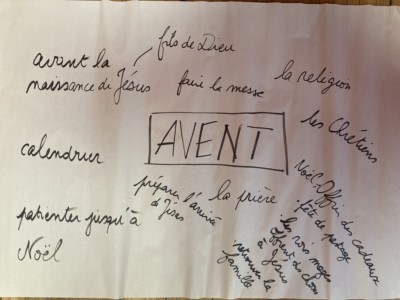 fils de Dieu
avant la
naissance de Jésus
faire la messe
la religion
les Chrétiens
AVENT
calendrier
préparer l'arrivée
de Jésus
la prière
Noël: Offrir des cadeaux
fête de partage
les rois mages
offrent des dons
à Jésus
retrouver la
famille
patienter jusqu'à
Noël